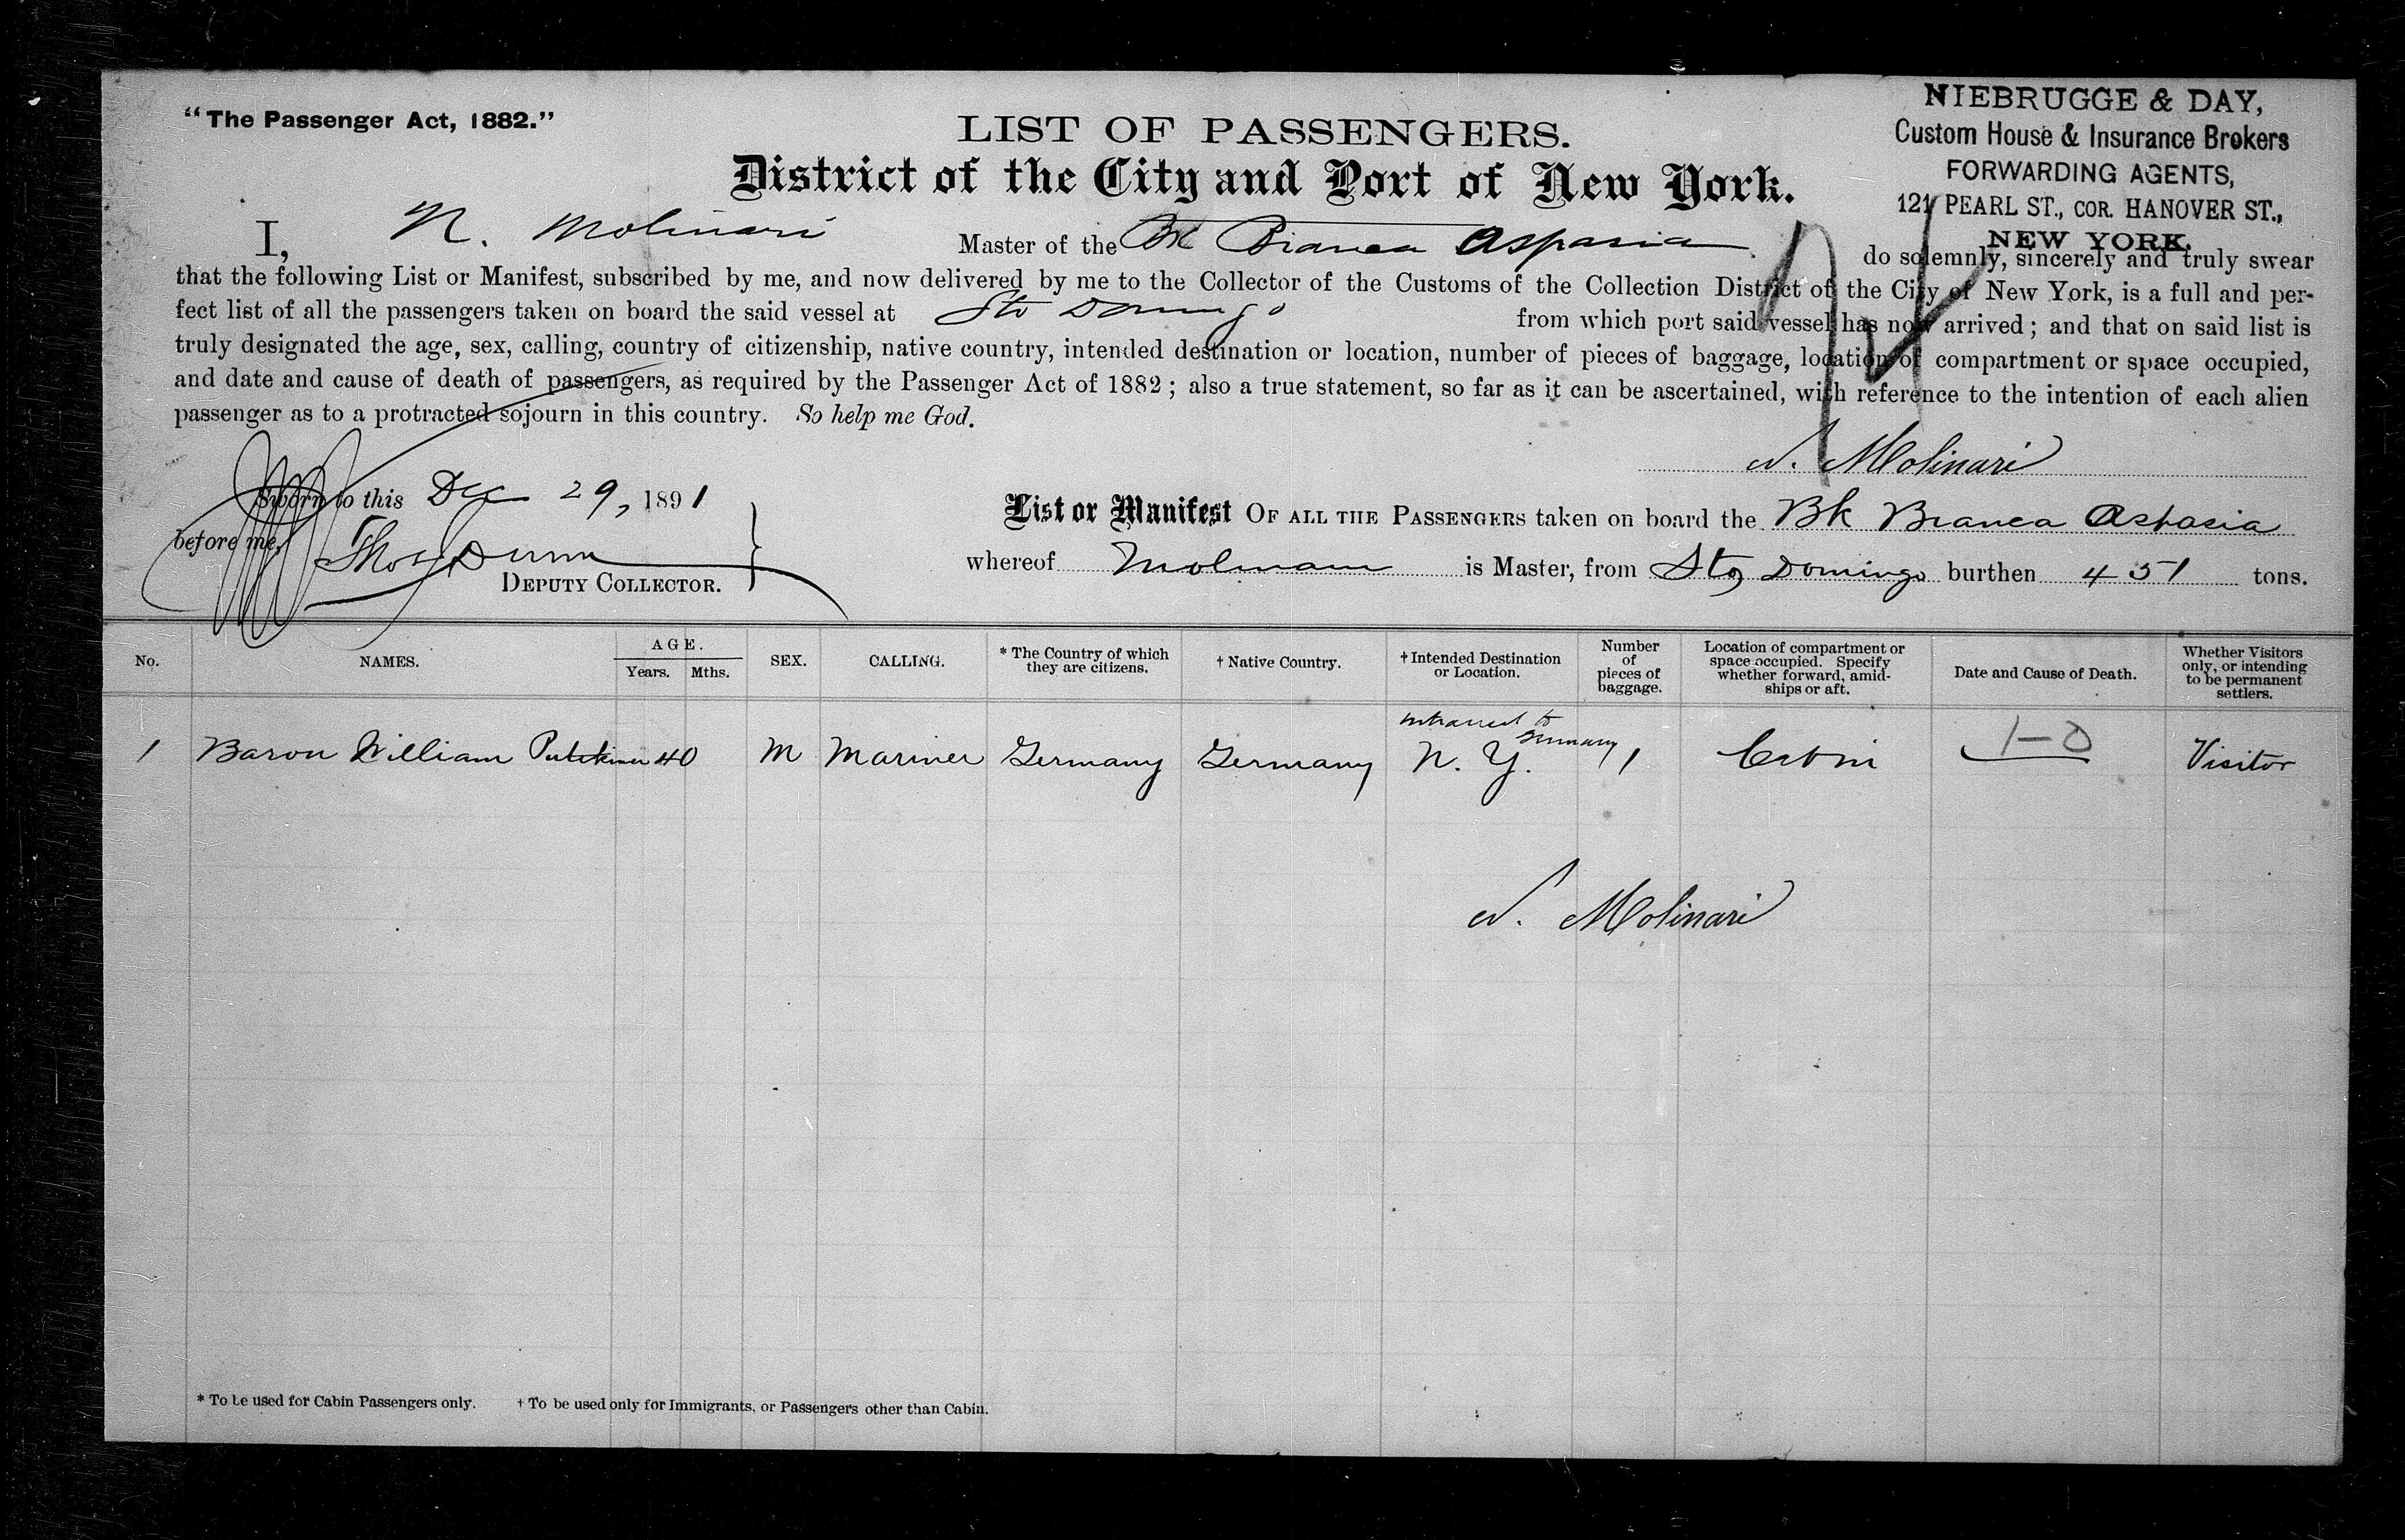 "The Passenger Act, 1882."
LIST OF PASSENGERS.
District of the City and Port of New York.
NIEBRUGGE & DAY,
Custom House & Insurance Brokers
FORWARDING AGENTS,
121 PEARL ST., COR. HANOVER ST.,
NEW YORK.
I, N. Molinari Master of the Bk Bianca Aspasia do solemnly, sincerely and truly swear
that the following List or Manifest, subscribed by me, and now delivered by me to the Collector of the Customs of the Collection District of the City of New York, is a full and per-
fect list of all the passengers taken on board the said vessel at Sto Domingo from which port said vessel has now arrived; and that on said list is
truly designated the age, sex, calling, country of citizenship, native country, intended destination or location, number of pieces of baggage, location of compartment or space occupied,
and date and cause of death of passengers, as required by the Passenger Act of 1882; also a true statement, so far as it can be ascertained, with reference to the intention of each alien
passenger as to a protracted sojourn in this country. So help me God.
N. Molinari
Sworn to this Dec 29, 1891
before me, Thos Dunn
DEPUTY COLLECTOR.
List or Manifest OF ALL THE PASSENGERS taken on board the Bk Bianca Aspasia
whereof Molinari is Master, from Sto Domingo burthen 451 tons.
No. NAMES. AGE. Years. Mths. SEX. CALLING. * The Country of which they are citizens. † Native Country. † Intended Destination or Location. Number of pieces of baggage. Location of compartment or space occupied. Specify whether forward, amid-ships or aft. Date and Cause of Death. Whether Visitors only, or intending to be permanent settlers.
to Germany
1 Baron William 40 M Mariner Germany Germany N. Y. 1 Cabin Visitor
N. Molinari
* To be used for Cabin Passengers only. † To be used only for Immigrants, or Passengers other than Cabin.